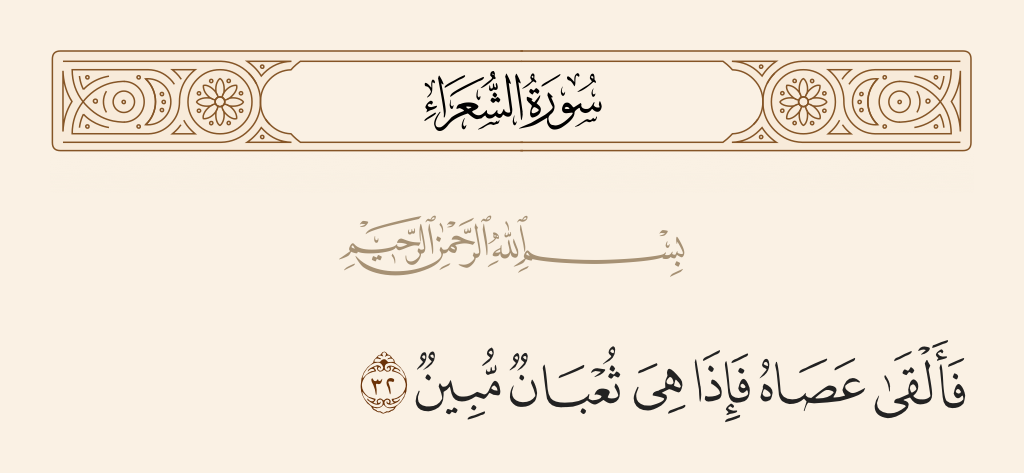 سُورَةُ الشُّعَرَاءِ
بِسْمِ ٱللَّهِ ٱلرَّحْمَٰنِ ٱلرَّحِيمِ
فَأَلْقَىٰ عَصَاهُ فَإِذَا هِىَ ثُعْبَانٌ مُّبِينٌ ٣٢